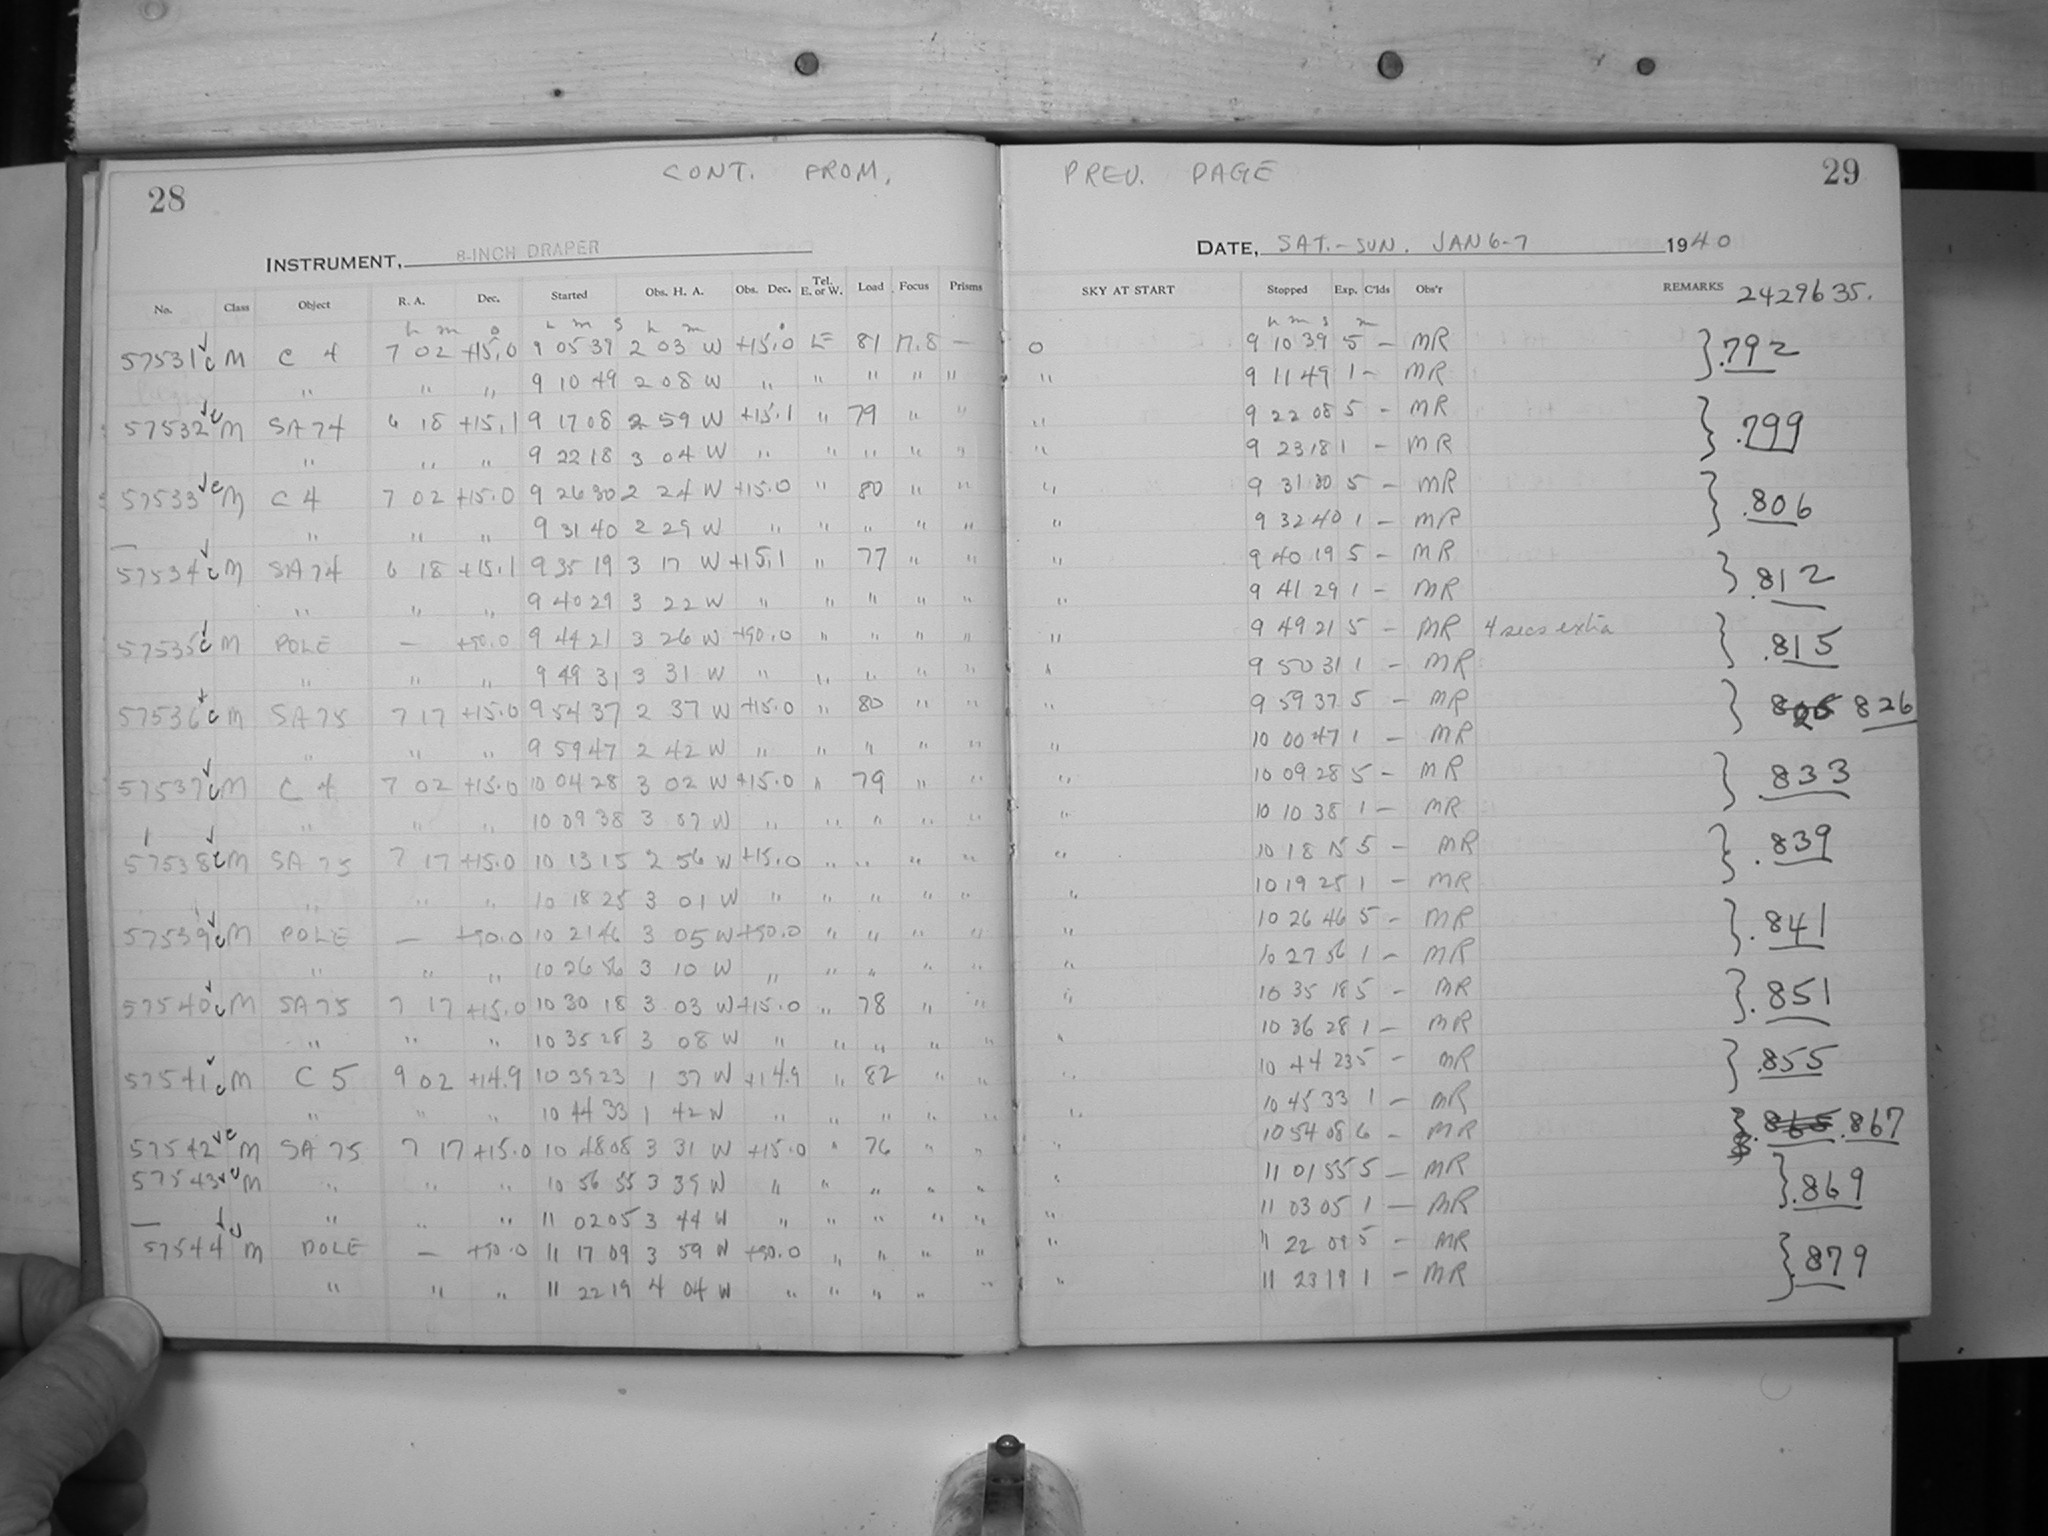 28 CONT. FROM, PREV. PAGE 29
INSTRUMENT, 8-INCH DRAPER DATE, SAT.-SUN. JAN 6-7 1940
No. Class Object R. A. Dec. Started Obs. H. A. Obs. Dec. Tel. E. or W. Load Focus Prisms SKY AT START Stopped Exp. C'lds Obs'r REMARKS 2429635.
h m o h m s h m o h m s m
57531 c M C 4 7 02 +15.0 9 05 39 2 03 W +15.0 E 81 17.8 — 0 9 10 39 5 — MR } .792
" " " 9 10 49 2 08 W " " " " " " 9 11 49 1 — MR
57532 c M SA 74 6 18 +15.1 9 17 08 2 59 W +15.1 " 79 " " " 9 22 08 5 — MR } .799
" " " 9 22 18 3 04 W " " " " " " 9 23 18 1 — MR
57533 c M C 4 7 02 +15.0 9 26 30 2 24 W +15.0 " 80 " " " 9 31 30 5 — MR } .806
" " " 9 31 40 2 29 W " " " " " " 9 32 40 1 — MR
57534 c M SA 74 6 18 +15.1 9 35 19 3 17 W +15.1 " 77 " " 9 40 19 5 — MR } .812
" " " 9 40 29 3 22 W " " " " " " 9 41 29 1 — MR
57535 c M POLE — +90.0 9 44 21 3 26 W +90.0 " " " " " 9 49 21 5 — MR 4 secs extra } .815
" " " 9 49 31 3 31 W " " " " " " 9 50 31 1 — MR
57536 c M SA 75 7 17 +15.0 9 54 37 2 37 W +15.0 " 80 " " " 9 59 37 5 — MR } 826
" " " 9 59 47 2 42 W " " " " " " 10 00 47 1 — MR
57537 c M C 4 7 02 +15.0 10 04 28 3 02 W +15.0 " 79 " " " 10 09 28 5 — MR } .833
" " " 10 09 38 3 07 W " " " " " " 10 10 38 1 — MR
57538 c M SA 75 7 17 +15.0 10 13 15 2 56 W +15.0 " " " " " 10 18 15 5 — MR } .839
" " " 10 18 25 3 01 W " " " " " " 10 19 25 1 — MR
57539 c M POLE — +90.0 10 21 46 3 05 W +90.0 " " " " " 10 26 46 5 — MR } .841
" " " 10 26 56 3 10 W " " " " " " 10 27 56 1 — MR
57540 c M SA 75 7 17 +15.0 10 30 18 3 03 W +15.0 " 78 " " " 10 35 18 5 — MR } .851
" " " 10 35 28 3 08 W " " " " " " 10 36 28 1 — MR
57541 c M C 5 9 02 +14.9 10 39 23 1 37 W +14.9 " 82 " " " 10 44 23 5 — MR } .855
" " " 10 44 33 1 42 W " " " " " " 10 45 33 1 — MR
57542 c M SA 75 7 17 +15.0 10 48 08 3 31 W +15.0 " 76 " " " 10 54 08 6 — MR } .865 .867
57543 c M " " " 10 56 55 3 39 W " " " " " " 11 01 55 5 — MR } .869
" " " 11 02 05 3 44 W " " " " " " 11 03 05 1 — MR
57544 c M POLE — +90.0 11 17 09 3 59 W +90.0 " " " " " 11 22 09 5 — MR } .879
" " " 11 22 19 4 04 W " " " " " " 11 23 19 1 — MR